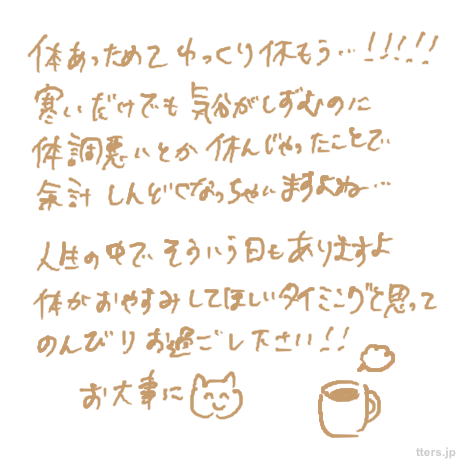 体あっためて ゆっくり休もう…!!!!!
寒いだけでも 気分がしずむのに
体調悪いとか 休んじゃったことで
余計 しんどくなっちゃいますよね…
人生の中で そういう日もありますよ
体がおやすみしてほしいタイミングと思って
のんびり お過ごし下さい!!
お大事に
tters.jp